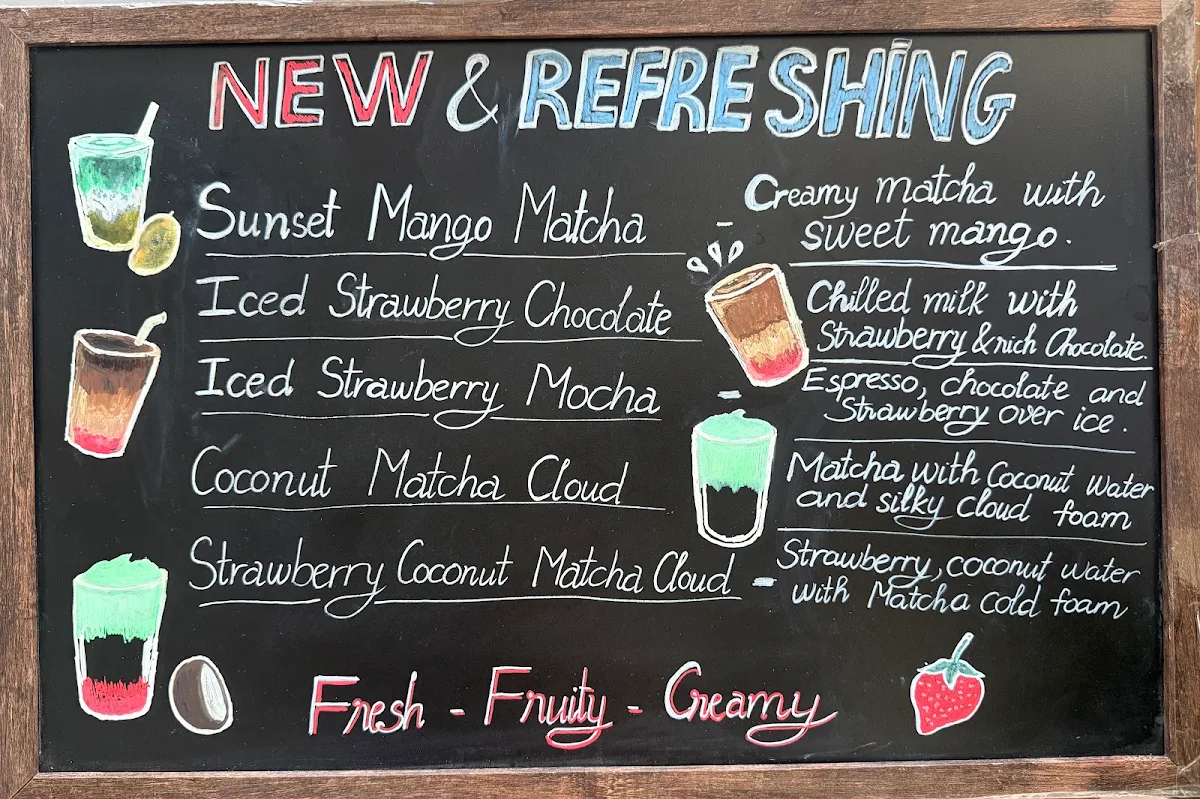 NEW & REFRESHING
Sunset Mango Matcha - Creamy matcha with
sweet mango.
Iced Strawberry Chocolate Chilled milk with
Strawberry & rich Chocolate.
Iced Strawberry Mocha - Espresso, chocolate and
Strawberry over ice.
Coconut Matcha Cloud Matcha with Coconut water
and silky Cloud foam
Strawberry Coconut Matcha Cloud - Strawberry, coconut water
with Matcha cold foam
Fresh - Fruity - Creamy